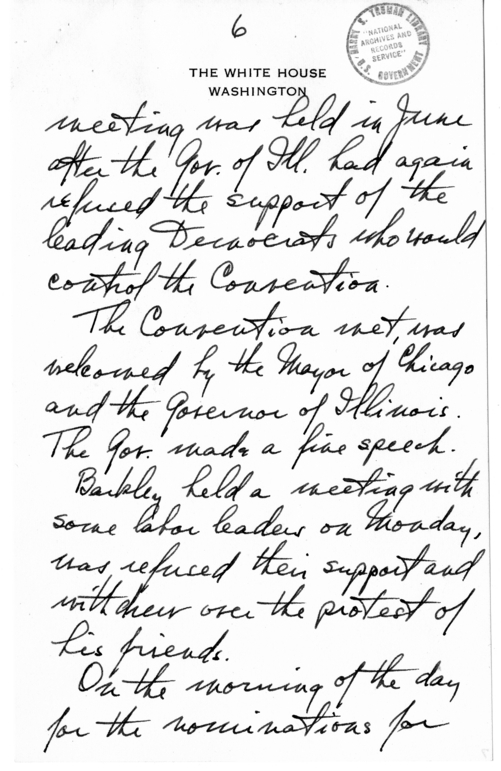 6
HARRY S. TRUMAN LIBRARY
"NATIONAL
ARCHIVES AND
RECORDS
SERVICE"
U.S. GOVERNMENT
THE WHITE HOUSE
WASHINGTON
meeting was held in June
after the Gov. of Ill. had again
refused the support of the
leading Democrats who would
control the Convention.
The Convention met, was
welcomed by the Mayor of Chicago
and the Governor of Illinois.
The Gov. made a fine speech.
Barkley held a meeting with
some labor leaders on Monday,
was refused their support and
withdrew over the protest of
his friends.
On the morning of the day
for the nominations for